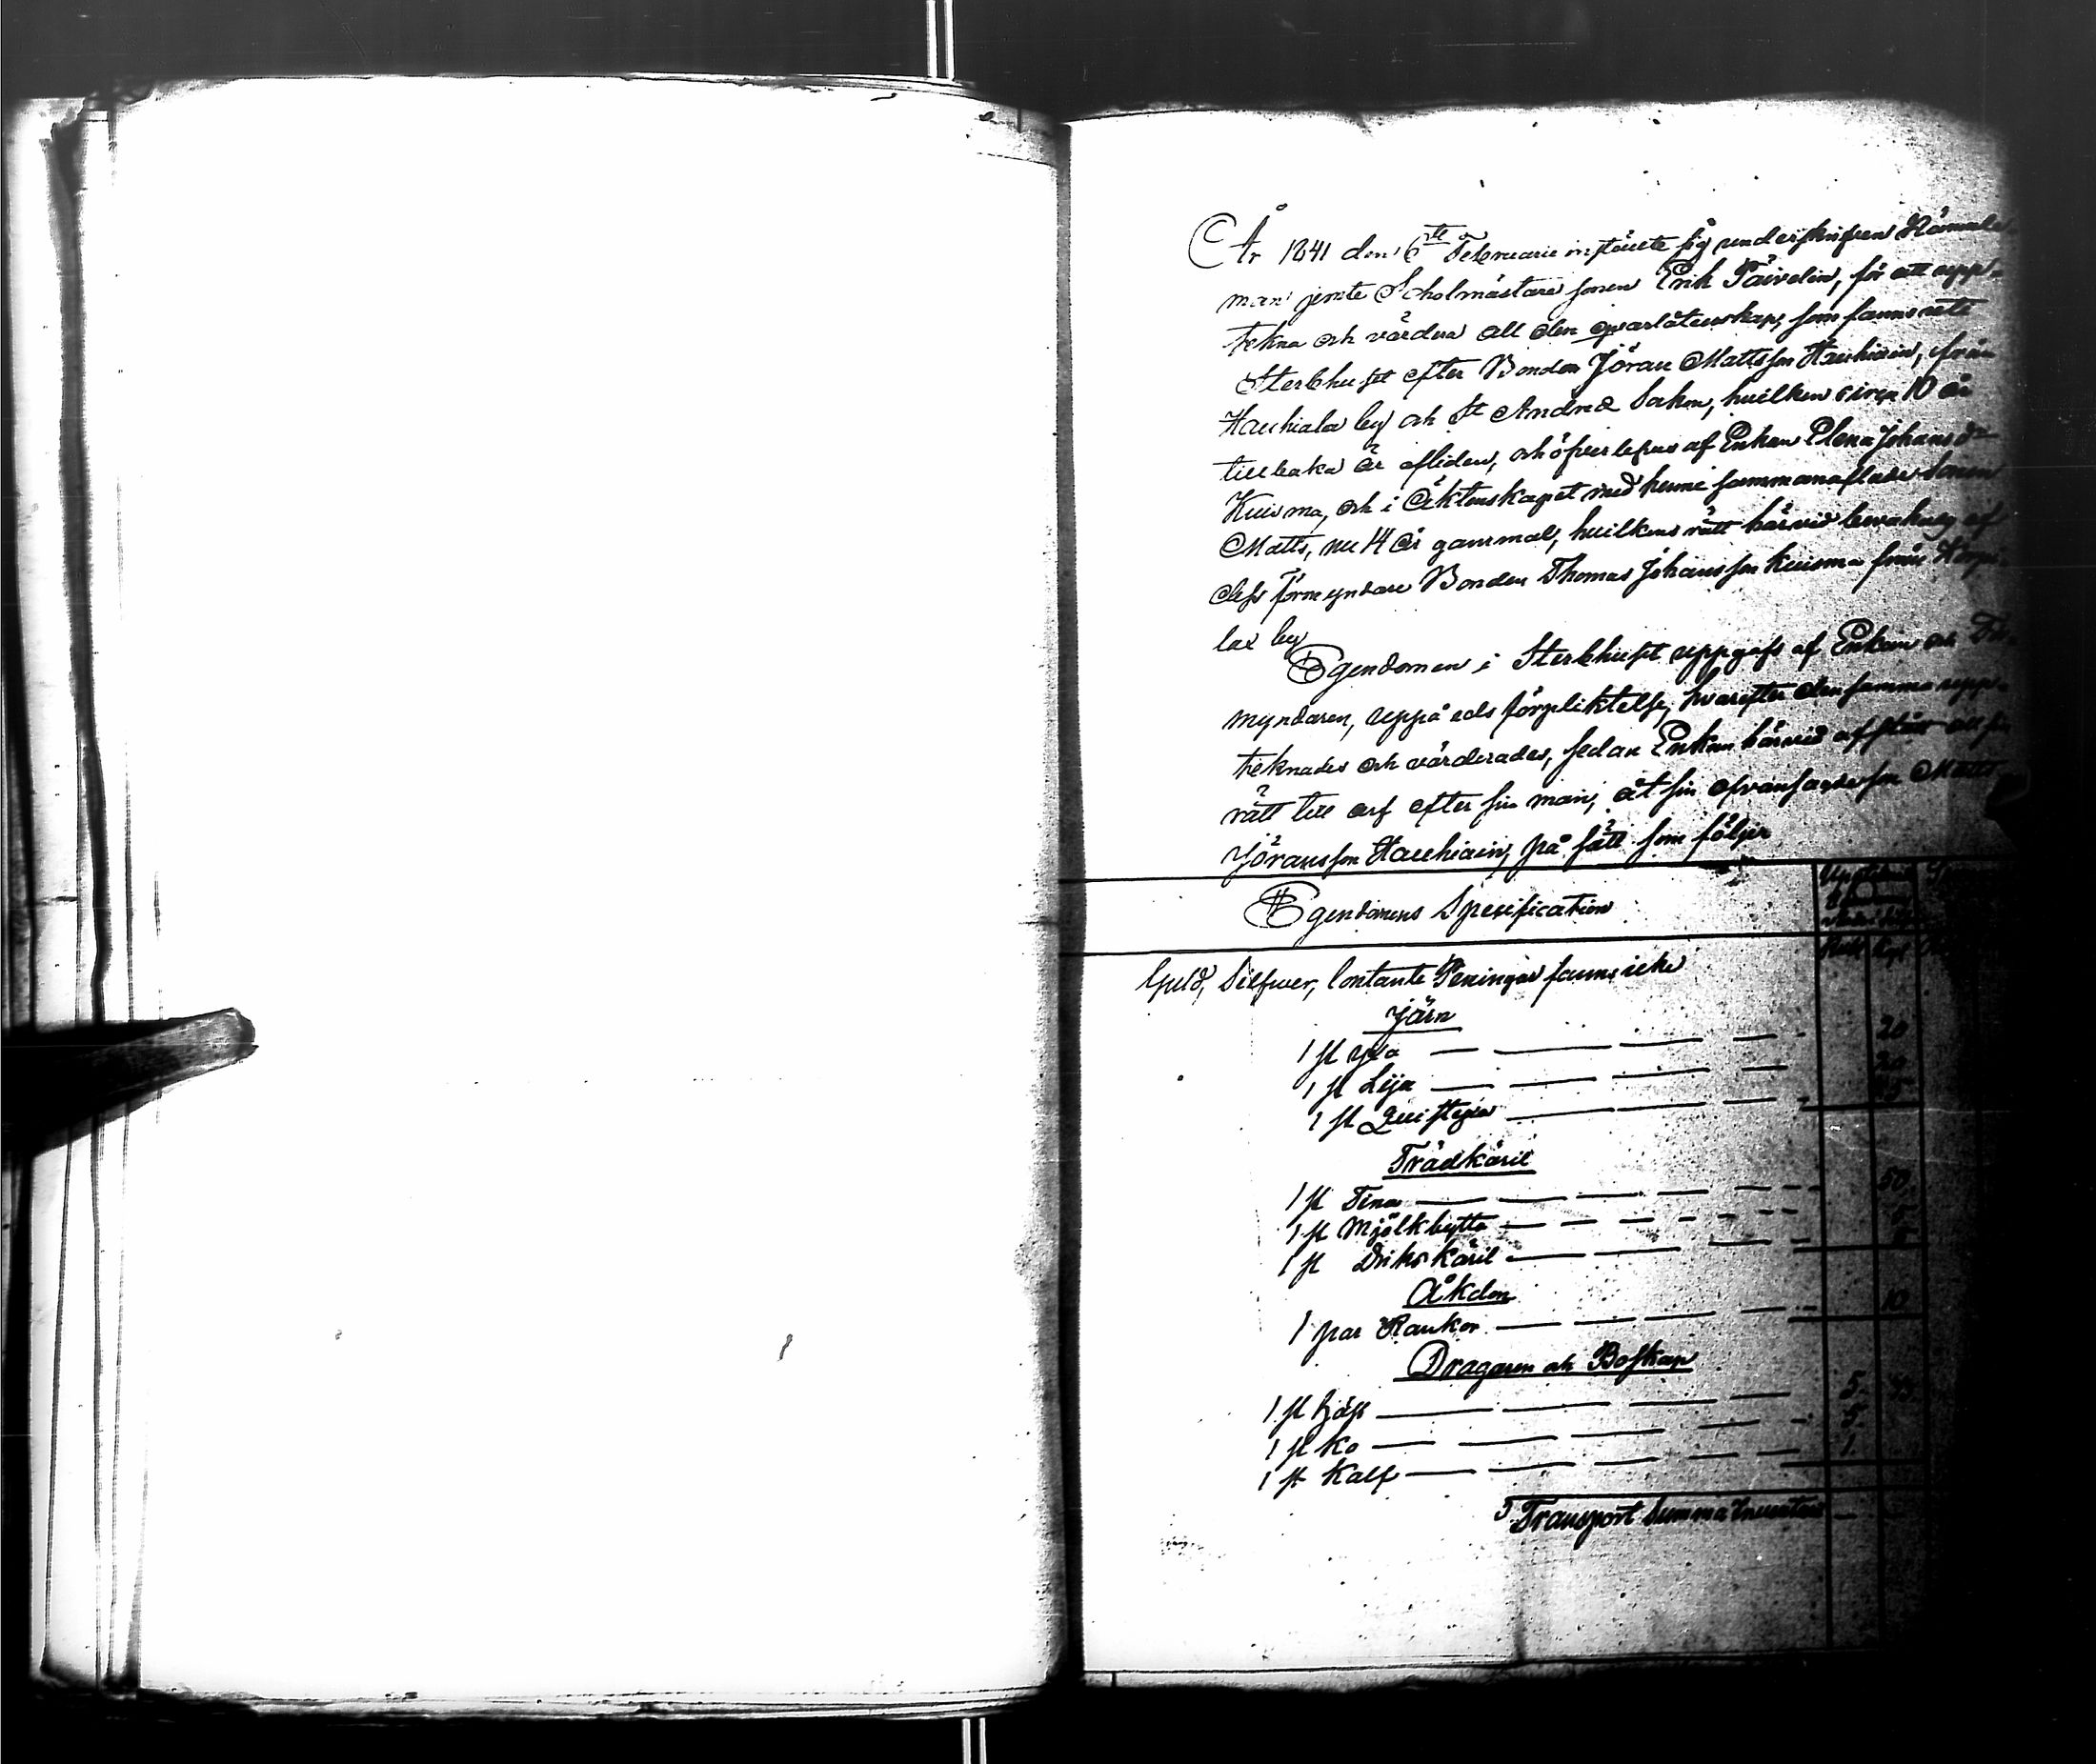 År 1841 den 6te Februarie instälte sig underskrifven Nämnde-
man jemte Scholmästare sonen Erik Päivelin, för att upp-
tekna och värdera all den qvarlåtenskap, som fanns uti
Sterbhuset efter Bonden Jöran Mattsson Hauhiain, från
Hauhiala by och St Andreæ Sokn, hvilken circa 10 år
tillbaka är afliden, och öfverlefves af Enkan Elena Johansdr
Kuisma, och i Äktenskapet med henne sammanaflade Sonen
Matts, nu 14 år gammal, hvilkens rätt härvid bevakas af
dess Förmyndare Bonden Thomas Johansson Kuisma från
lax by
Egendomen i Sterbhuset uppgafs af Enkan och För-
myndaren, uppå eds förpliktelse, hvarefter densamma upp-
teknades och värderades, sedan Enkan härvid afstår all sin
rätt till arf efter sin man, åt sin ofvansagde son Matts
Jöransson Hauhiain, på sätt som följer
Egendomens Specification
Guld, Silfwer, Contante Peningar fanns icke
Järn
1 st yxa 20
1 st Lija 20
1 st
Trädkäril
1 st Tina 50
1 st Mjölkbytta
1 st Drikskäril
Åkdon
1 par Raukor 10
Dragaren och Boskap
1 st
1 st Ko 5
1 st Kalf 1
Transport Summa